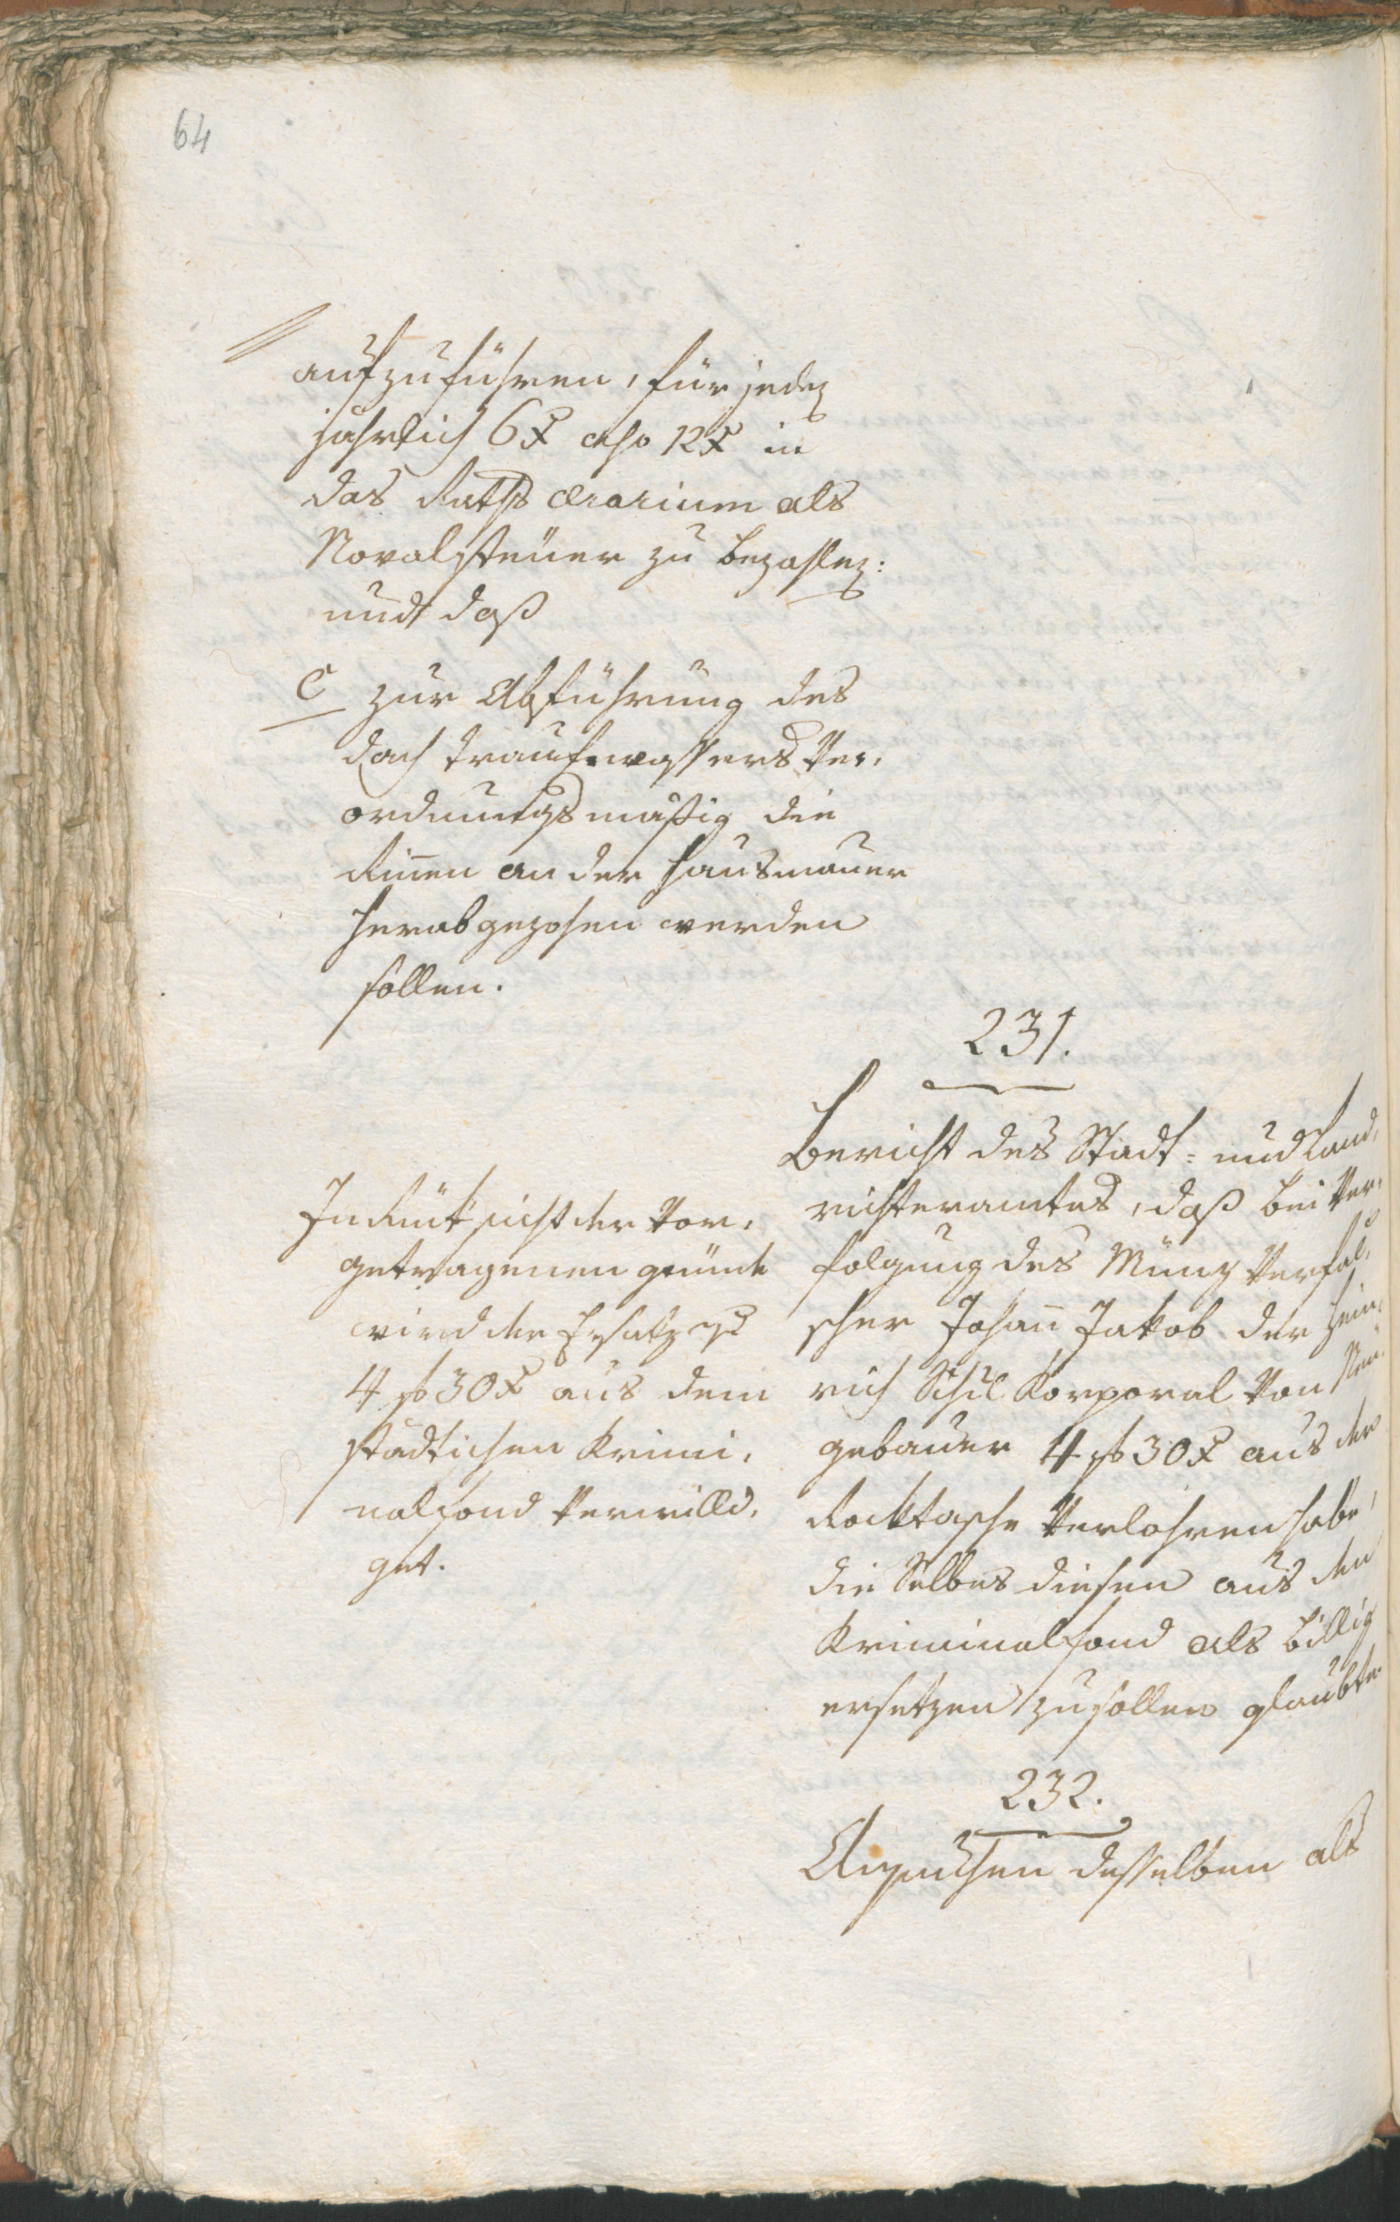 64
aufzuführen, für jedes
jährlich 6 x also 12 x in
das Raths Ærarium als
Novalsteuer zu bezahlen:
und daß
C zur Abführung des
Dach traufwassers Ver,
ordnungsmäßig die
Rinen an der Hausmauer
herabgezohen werden
sollen.
231.
Bericht des Stadt= und Land,
richteramtes, daß bei Ver,
folgung des Münz Verfäl,
scher Johan Jakob der Hein,
rich Korporal von Neu,
gebauer 4 f 30 x aus der
Rocktasche Verlohren habe,
die Selbes diesen aus dem
Kriminalfond als billig
ersetzen zu sollen glaubte.
In Rüksicht der Vor,
getragenen gründe
wird der Ersatz pr
4 f 30 x aus dem
städtischen Krimi,
nalfond Verwilli,
get.
232.
Ansuchen desselben als